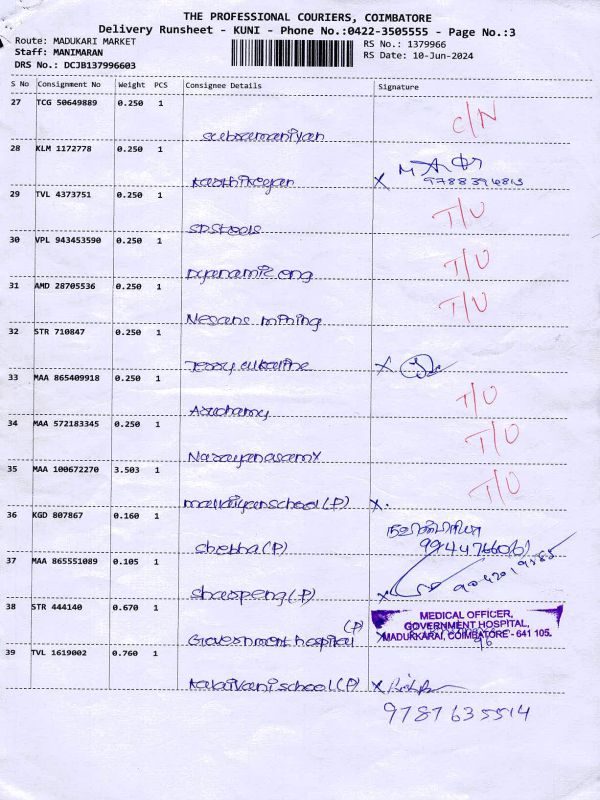 THE PROFESSIONAL COURIERS, COIMBATORE
Delivery Runsheet - KUNI - Phone No.:0422-3505555 - Page No.:3
Route: MADUKARI MARKET
RS No.: 1379966
Staff: MANIMARAN
RS Date: 10-Jun-2024
DRS No.: DCJB137996603
S No Consignment No Weight PCS Consignee Details Signature
27 TCG 50649889 0.250 1
C/N
Subramaniyan
28 KLM 1172778 0.250 1
Karthikeyan X
29 TVL 4373751 0.250 1
T/U
SDS tools
30 VPL 943453590 0.250 1
T/U
Dyanamic eng
31 AMD 28705536 0.250 1
T/U
Nesans mining
32 STR 710847 0.250 1
X
33 MAA 865409918 0.250 1
T/U
34 MAA 572183345 0.250 1
T/U
Narayanasamy
35 MAA 100672270 3.503 1
T/U
school (P) X.
36 KGD 807867 0.160 1
(P)
37 MAA 865551089 0.105 1
Sharpeng (P) X
38 STR 444140 0.670 1
MEDICAL OFFICER,
GOVERNMENT HOSPITAL,
MADUKKARAI, COIMBATORE - 641 105.
Government hospital (P)
39 TVL 1619002 0.760 1
Kalaivani school (P) X
9787635514